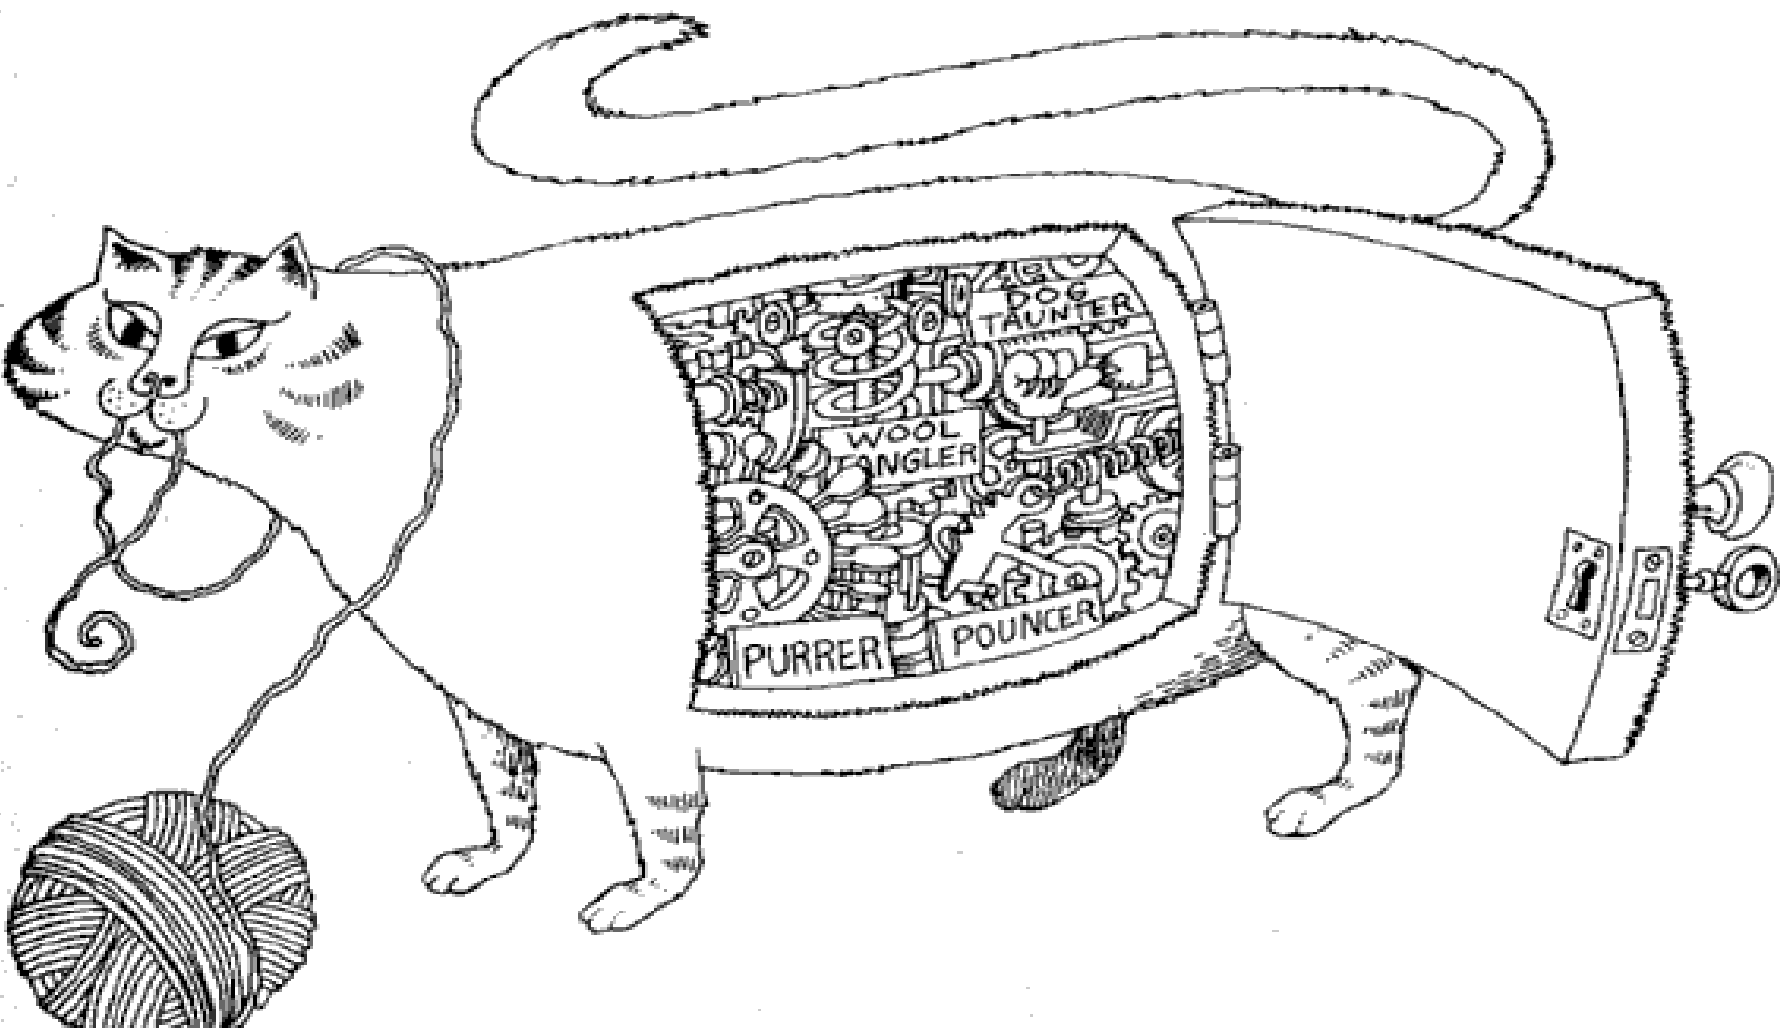 DOG
TAUNTER
WOOL
TANGLER
PURRER
POUNCER